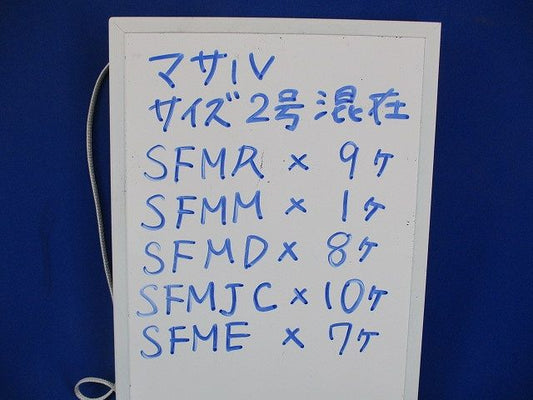 マサルV
サイズ2号混在
SFMR × 9ケ
SFMM × 1ケ
SFMD × 8ケ
SFMJC × 10ケ
SFME × 7ケ